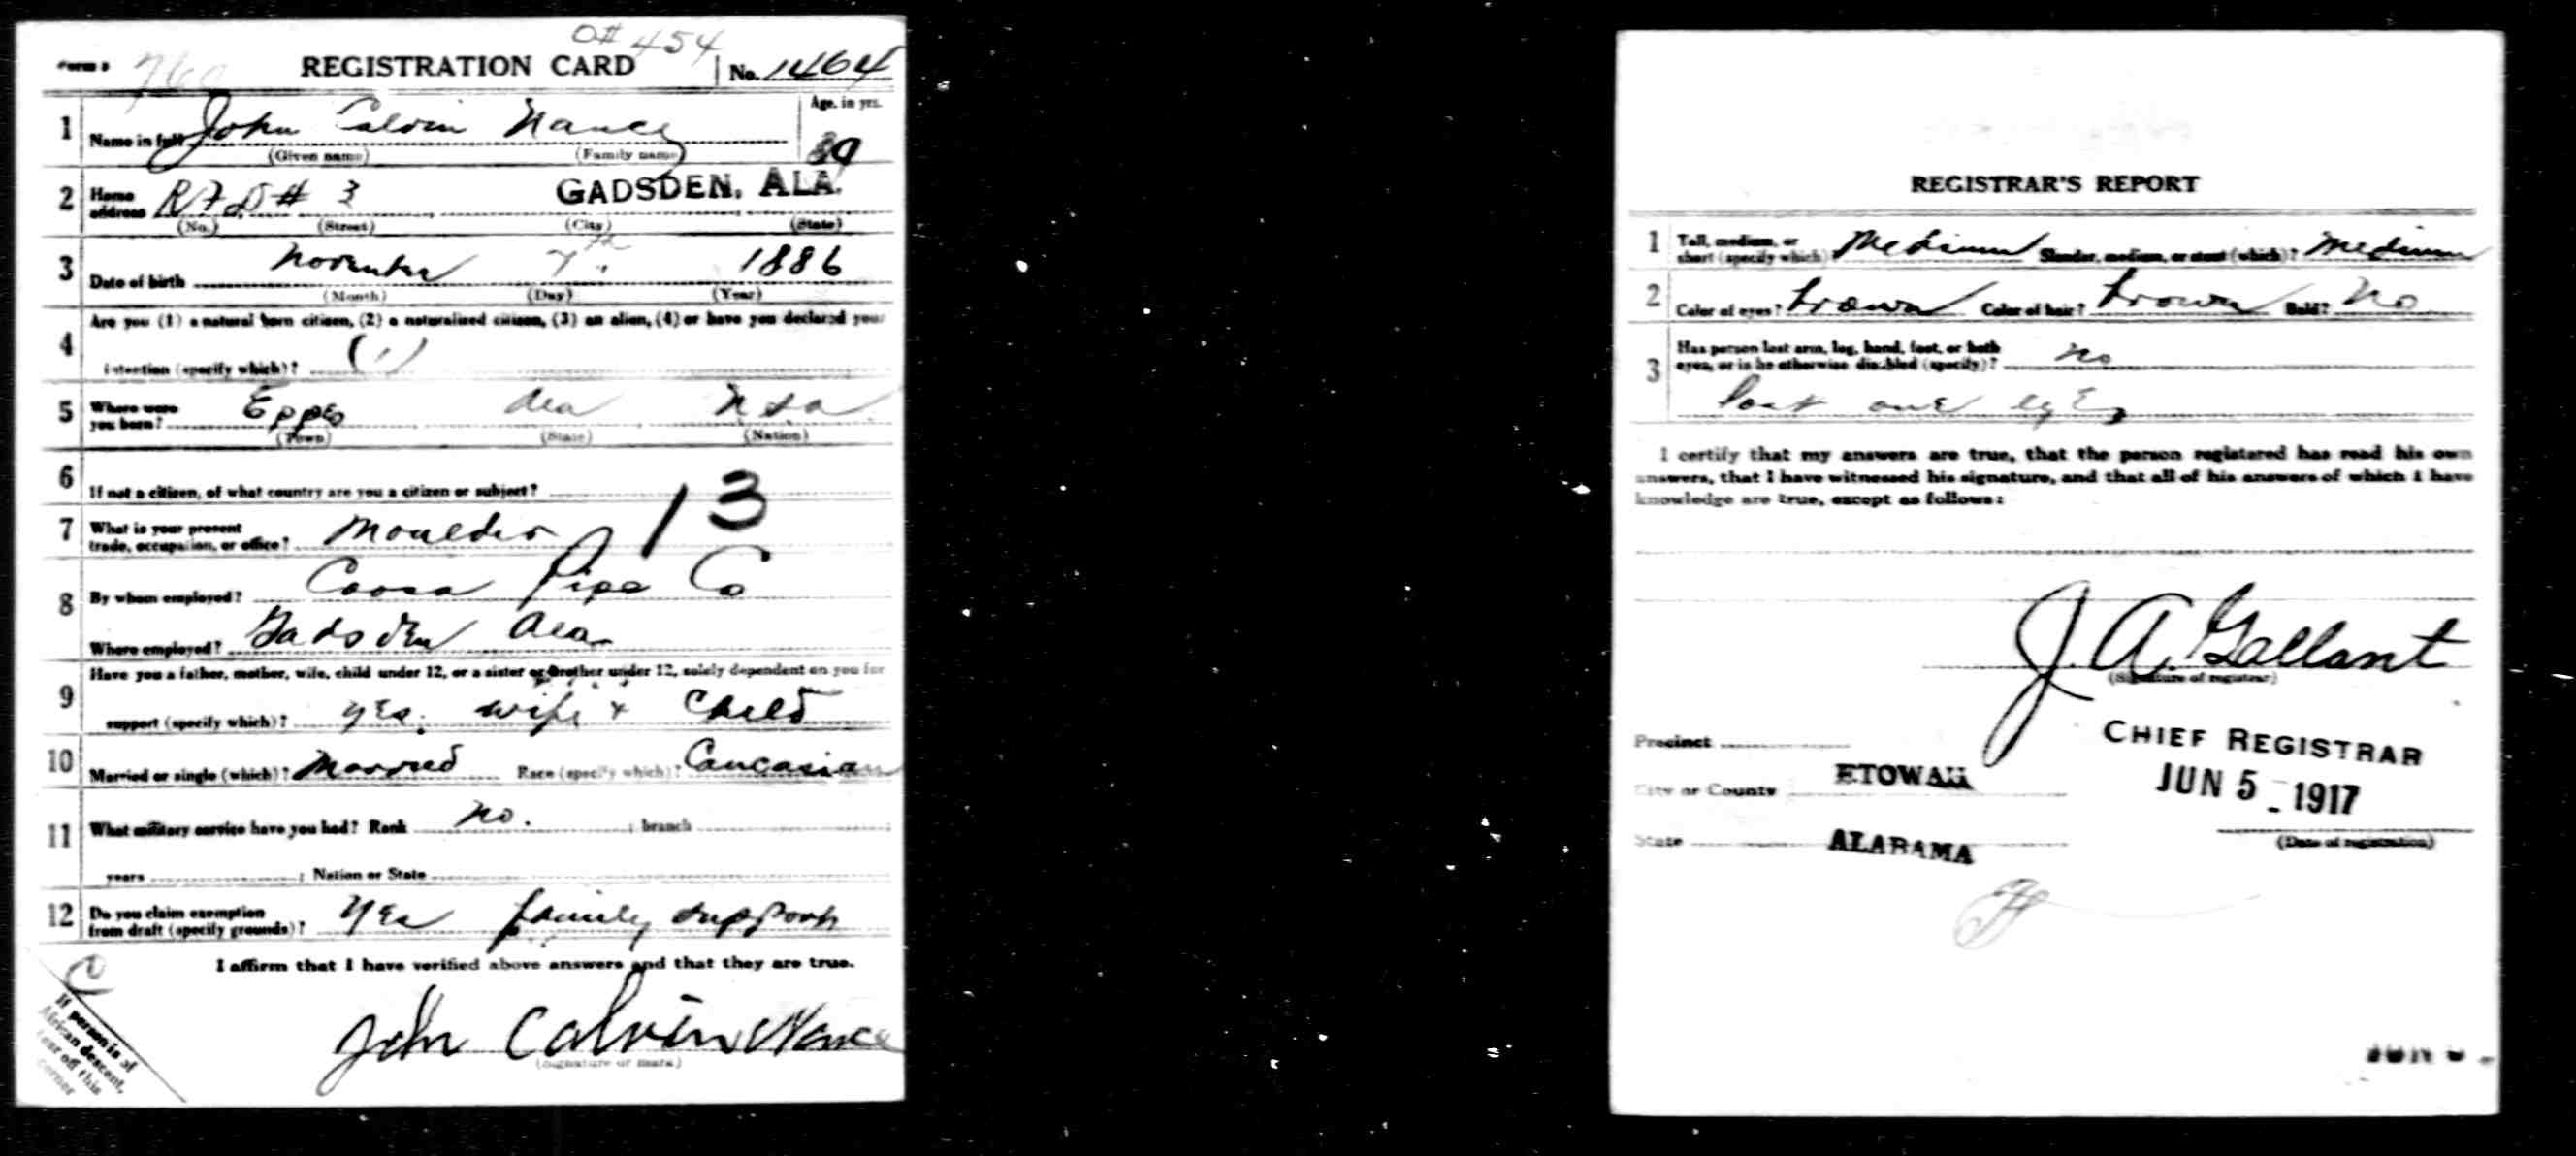 O# 454
Form 1 REGISTRATION CARD No. 1464
1 Name in full John Calvin Nance Age, in yrs.
(Given name) (Family name) 30
2 Home address R F D # 3 GADSDEN, ALA.
(No.) (Street) (City) (State)
3 Date of birth November 7th 1886
(Month) (Day) (Year)
4 Are you (1) a natural born citizen, (2) a naturalized citizen, (3) an alien, (4) or have you declared your
intention (specify which)? (1)
5 Where were you born? Eppes Ala USA
(Town) (State) (Nation)
6 If not a citizen, of what country are you a citizen or subject?
13
7 What is your present trade, occupation, or office? Moulder
8 By whom employed? Coosa Pipe Co
Where employed? Gadsden Ala
9 Have you a father, mother, wife, child under 12, or a sister or brother under 12, solely dependent on you for
support (specify which)? yes. wife + child
10 Married or single (which)? Married Race (specify which)? Caucasian
11 What military service have you had? Rank no. ; branch
years ; Nation or State
12 Do you claim exemption from draft (specify grounds)? Yes family support
I affirm that I have verified above answers and that they are true.
John Calvin Nance
(Signature or mark)
If person is of
African descent,
tear off this
corner
REGISTRAR'S REPORT
1 Tall, medium, or short (specify which)? Medium Slender, medium, or stout (which)? Medium
2 Color of eyes? brown Color of hair? brown Bald? No
3 Has person lost arm, leg, hand, foot, or both
eyes, or is he otherwise disabled (specify)? no
lost one eye
I certify that my answers are true, that the person registered has read his own
answers, that I have witnessed his signature, and that all of his answers of which I have
knowledge are true, except as follows:
J. A. Gallant
(Signature of registrar)
Precinct
CHIEF REGISTRAR
City or County ETOWAH
JUN 5 - 1917
State ALABAMA
(Date of registration)